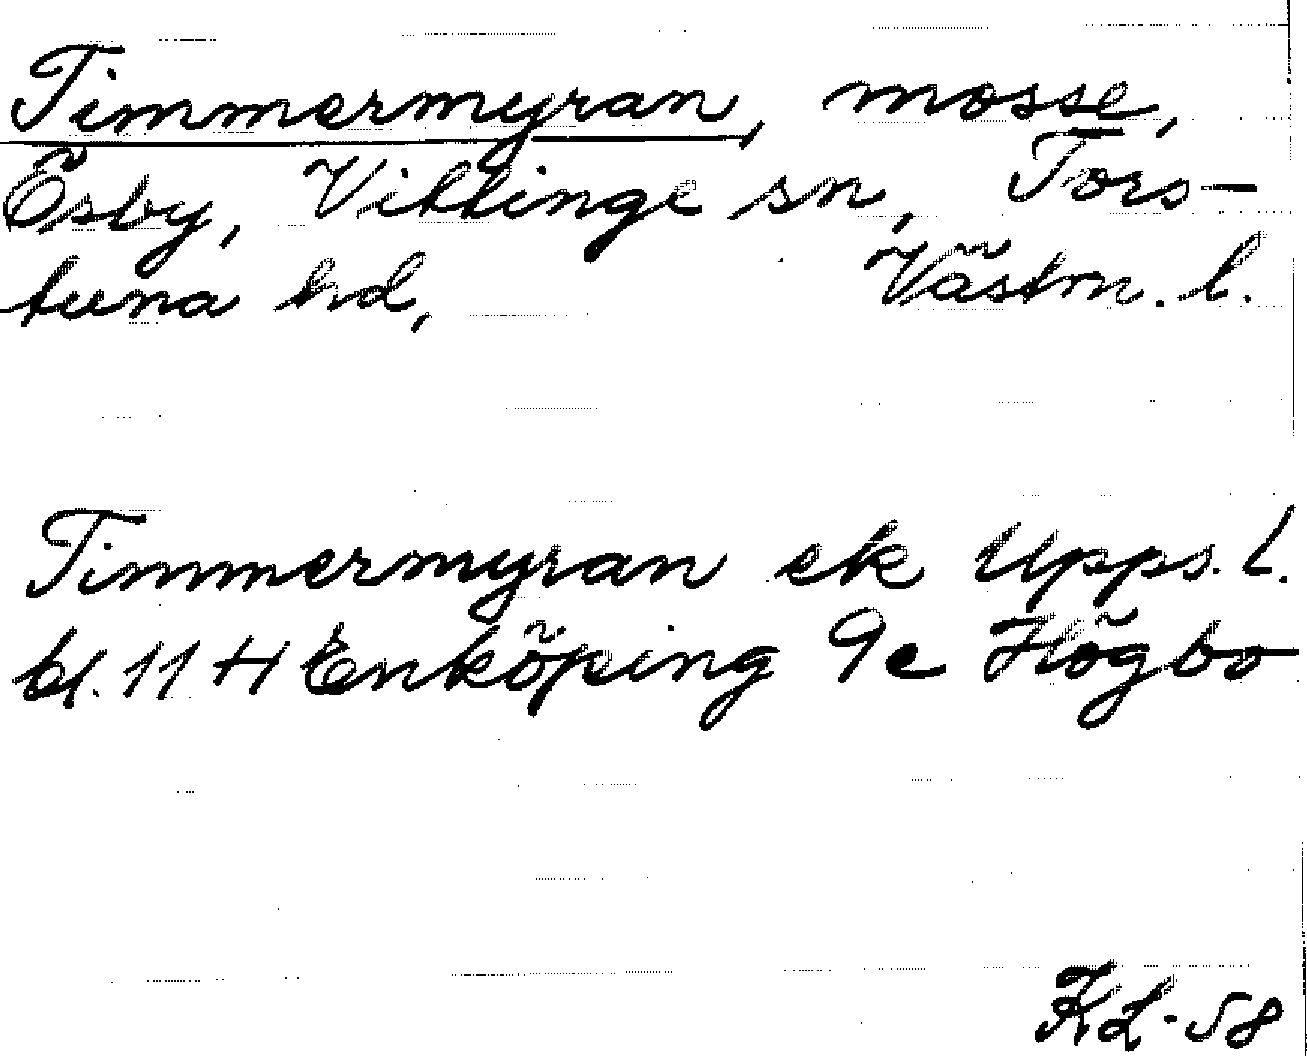 Timmermyran, mosse,
Ösby, Vittinge sn, Tors-
tuna hd, Västm. l.
Timmermyran ek Upps. l.
bl. 11 H Enköping 9e Högbo
KL-58